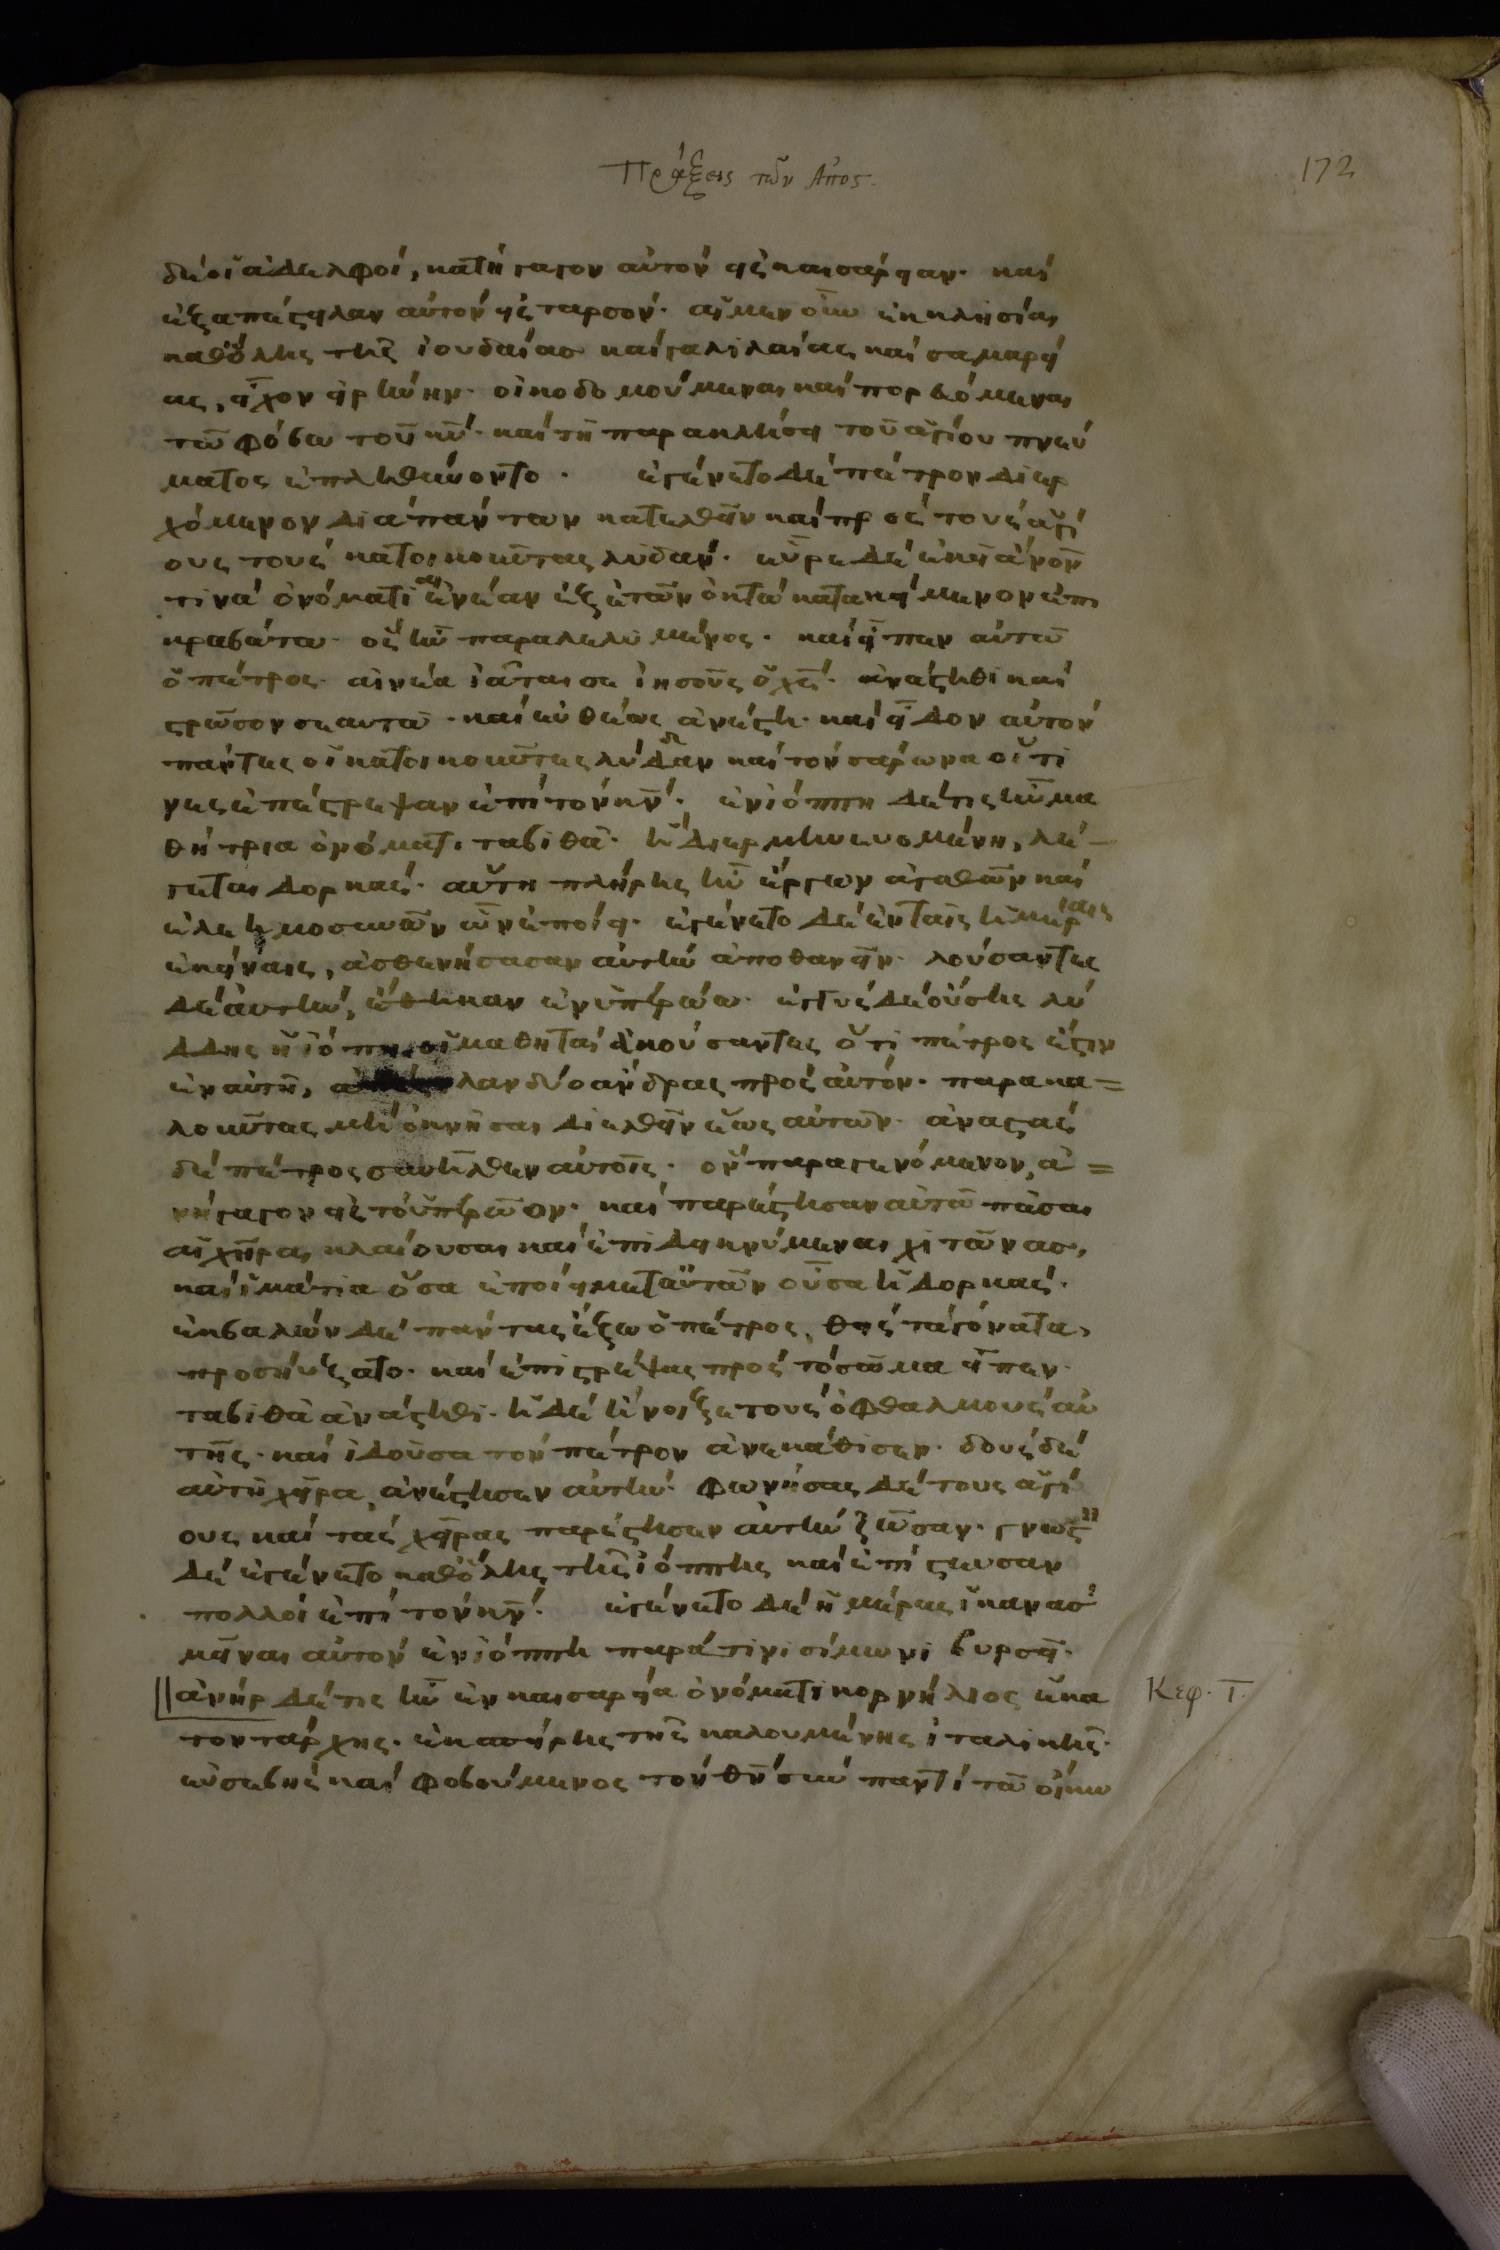 Πράξεις τῶν Ἀπος.
172
δὲ οἱ ἀδελφοὶ, κατήγαγον αὐτὸν εἰς καισάρειαν. καὶ
ἐξαπέστειλαν αὐτὸν εἰς ταρσόν. αἱ μὲν οὖν ἐκκλησίαι
καθ' ὅλης τῆς ἰουδαίας καὶ γαλιλαίας καὶ σαμαρεί
ας, εἶχον εἰρήνην. οἰκοδομούμεναι καὶ πορευόμεναι
τῶ φόβω τοῦ κυ. καὶ τῆ παρακλήσει τοῦ ἁγίου πνεύ
ματος ἐπληθύνοντο. ἐγένετο δὲ πέτρον διερ
χόμενον διὰ πάντων κατελθεῖν καὶ πρὸς τοὺς ἁγί
ους τοὺς κατοικοῦντας λύδαν. εὗρε δὲ ἐκεῖ ἄνον
τινὰ ὀνόματι αἰνέαν ἐξ ἐτῶν ὀκτὼ κατακείμενον ἐπι
κραβάτω. ὃς ἦν παραλελυμένος. καὶ εἶπεν αὐτῶ
ὁ πέτρος. αἰνέα ἰᾶται σε ἰησοῦς ὁ χς. ἀνάστηθι καὶ
στρῶσον σεαυτῶ. καὶ εὐθέως ἀνέστη. καὶ εἶδον αὐτὸν
πάντες οἱ κατοικοῦντες λύδδαν καὶ τὸν σαρωνα οἵτι
νες ἐπέστρεψαν ἐπὶ τὸν κν. ἐν ἰόππη δέ τις ἦν μα
θήτρια ὀνόματι ταβιθὰ. ἣ διερμηνευομένη, λέ
γεται δορκάς. αὕτη πλήρης ἦν ἔργων ἀγαθῶν καὶ
ἐλεημοσυνῶν ὧν ἐποίει. ἐγένετο δὲ ἐν ταῖς ἡμέραις
ἐκείναις, ἀσθενήσασαν αὐτὴν ἀποθανεῖν. λούσαντες
δὲ αὐτὴν, ἔθηκαν ἐν ὑπερώω. ἐγγὺς δὲ οὔσης λύ
δδης ἡ ἰόπη, οἱ μαθηταὶ ἀκούσαντες ὅτι πέτρος ἐστιν
ἐν αὐτῆ, λαν δύο ἄνδρας πρὸς αὐτὸν. παρακα=
λοῦντες μὴ ὀκνῆσαι διελθεῖν ἕως αὐτῶν. ἀναστὰς
δὲ πέτρος συνῆλθεν αὐτοῖς. ὃν παραγενόμενον, ἀ=
νήγαγον εἰς τὸ ὑπερῶον. καὶ παρέστησαν αὐτῶ πᾶσαι
αἱ χῆραι κλαίουσαι καὶ ἐπιδεικνύμεναι χιτῶνας,
καὶ ἱμάτια ὅσα ἐποίει μετ' αὐτῶν οὖσα ἡ δορκάς.
ἐκβαλὼν δὲ πάντας ἔξω ὁ πέτρος, θεὶς τὰ γόνατα,
προσηύξατο. καὶ ἐπιστρέψας πρὸς τὸ σῶμα εἶπεν.
ταβιθὰ ἀνάστηθι. ἡ δὲ ἤνοιξε τοὺς ὀφθαλμοὺς αὐ
τῆς. καὶ ἰδοῦσα τὸν πέτρον ἀνεκάθισεν. δοὺς δὲ
αὐτῆ χεῖρα, ἀνέστησεν αὐτὴν. φωνήσας δὲ τους ἁγί
ους καὶ τὰς χήρας παρέστησεν αὐτὴν ζῶσαν. γνωστὸν
δὲ ἐγένετο καθ' ὅλης τῆς ἰόππης καὶ ἐπίστευσαν
πολλοὶ ἐπὶ τὸν κν. ἐγένετο δὲ ἡμέρας ἱκανὰς
μεῖναι αὐτὸν ἐν ἰόππη παρά τινι σίμωνι βυρσεῖ.
ἀνὴρ δέ τις ἦν ἐν καισαρεία ὀνόματι κορνήλιος ἑκα
τοντάρχης. ἐκ σπείρης τῆς καλουμένης ἰταλικῆς.
εὐσεβὴς καὶ φοβούμενος τὸν θν σὺν παντὶ τῶ οἴκω
Κεφ. Ι.